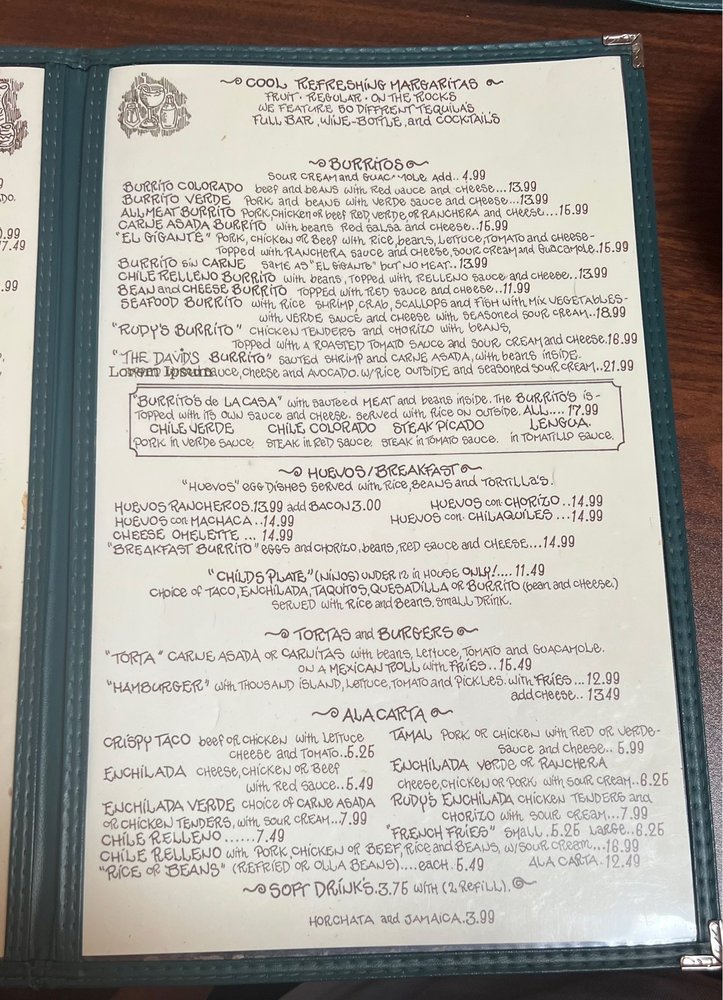 COOL REFRESHING MARGARITAS
FRUIT · REGULAR · ON THE ROCKS
WE FEATURE 50 DIFFRENT TEQUILA'S
FULL BAR, WINE-BOTTLE, and COCKTAILS
BURRITOS
SOUR CREAM and GUACAMOLE ADD.. 4.99
BURRITO COLORADO beef and beans with Red sauce and cheese...13.99
BURRITO VERDE PORK and beans with VERDE sauce and cheese...13.99
ALL MEAT BURRITO PORK, CHICKEN or beef RED, VERDE, or RANCHERA and cheese....15.99
CARNE ASADA BURRITO with beans Red SALSA and cheese..15.99
"EL GIGANTE" PORK, CHICKEN OR Beef with Rice, beans, Lettuce, TOMATO and cheese-
Topped with RANCHERA sauce and cheese, SOUR CREAM and Guacamole.15.99
BURRITO SIN CARNE SAME AS "EL GIGANTE" but NO MEAT..13.99
CHILE RELLENO BURRITO with beans, TOPPED with RELLENO sauce and cheese..13.99
BEAN and CHEESE BURRITO TOPPED with RED sauce and cheese..11.99
SEAFOOD BURRITO with Rice SHRIMP, CRAB, SCALLOPS and FISH with MIX VEGETABLES-
with VERDE SAUCE and CHEESE with SEASONED SOUR CREAM..18.99
"RUDY'S BURRITO" CHICKEN TENDERS and CHORIZO with beans,
Topped with A ROASTED TOMATO SAUCE and SOUR CREAM and CHEESE.16.99
"THE DAVID'S BURRITO" SAUTED SHRIMP and CARNE ASADA, with beans inside.
Lorem Ipsum sauce, cheese and AVOCADO. W/Rice OUTSIDE and seasoned SOUR CREAM..21.99
"BURRITO'S de LA CASA" with sauteed MEAT and beans inside. The BURRITO'S is-
TOPPED with ITS OWN SAUCE and CHEESE. SERVED with RICE ON OUTSIDE. ALL.... 17.99
CHILE VERDE CHILE COLORADO STEAK PICADO LENGUA.
PORK in VERDE SAUCE, STEAK in RED SAUCE. STEAK in TOMATO SAUCE. in TOMATILLO SAUCE.
HUEVOS/BREAKFAST
"HUEVOS" egg DISHES SERVED with RICE, BEANS and TORTILLA'S.
HUEVOS RANCHEROS.13.99 add BACON 3.00 HUEVOS con CHORIZO..14.99
HUEVOS con MACHACA..14.99 HUEVOS con CHILAQUILES ...14.99
CHEESE OMELETTE ... 14.99
"BREAKFAST BURRITO" EGGS and CHORIZO, beans, RED SAUCE and CHEESE...14.99
"CHILD'S PLATE" (NINOS) UNDER 12 IN HOUSE ONLY!.... 11.49
CHOICE OF TACO, ENCHILADA, TAQUITOS, QUESADILLA OR BURRITO (bean and cheese.)
SERVED with Rice and Beans, SMALL DRINK.
TORTAS and BURGERS
"TORTA" CARNE ASADA OR CARNITAS with beans, LETTUCE, TOMATO and GUACAMOLE.
ON A MEXICAN ROLL with FRIES..15.49
"HAMBURGER" with THOUSAND ISLAND, Lettuce, TOMATO and PICKLES. with FRIES...12.99
add cheese.. 13.49
ALA CARTA
CRISPY TACO beef or CHICKEN with LETTUCE
cheese and TOMATO..5.25
ENCHILADA CHEESE, CHICKEN OR Beef
with Red sauce..5.49
ENCHILADA VERDE CHOICE of CARNE ASADA
or CHICKEN TENDERS, with SOUR CREAM...7.99
CHILE RELLENO.......7.49
TAMAL PORK or CHICKEN with RED or VERDE-
sauce and cheese.. 5.99
ENCHILADA VERDE or RANCHERA
cheese, CHICKEN or PORK with SOUR CREAM..6.25
RUDY'S ENCHILADA CHICKEN TENDERS and
CHORIZO with SOUR CREAM...7.99
"FRENCH FRIES" SMALL..5.25 LARGE..6.25
CHILE RELLENO with PORK, CHICKEN OR BEEF, Rice and BEANS, w/SOUR CREAM...16.99
"RICE OR BEANS" (REFRIED OR OLLA BEANS)....each. 5.49 ALA CARTA. 12.49
SOFT DRINK'S.3.75 WITH (2 Refill).
HORCHATA and JAMAICA.3.99
DO.
0.99
7.49
.99